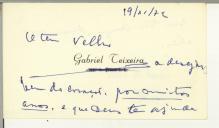 19/XI/72
Velho
Gabriel Teixeira a desejar
bem do coração, por muitos
anos, e que Deus te ajude